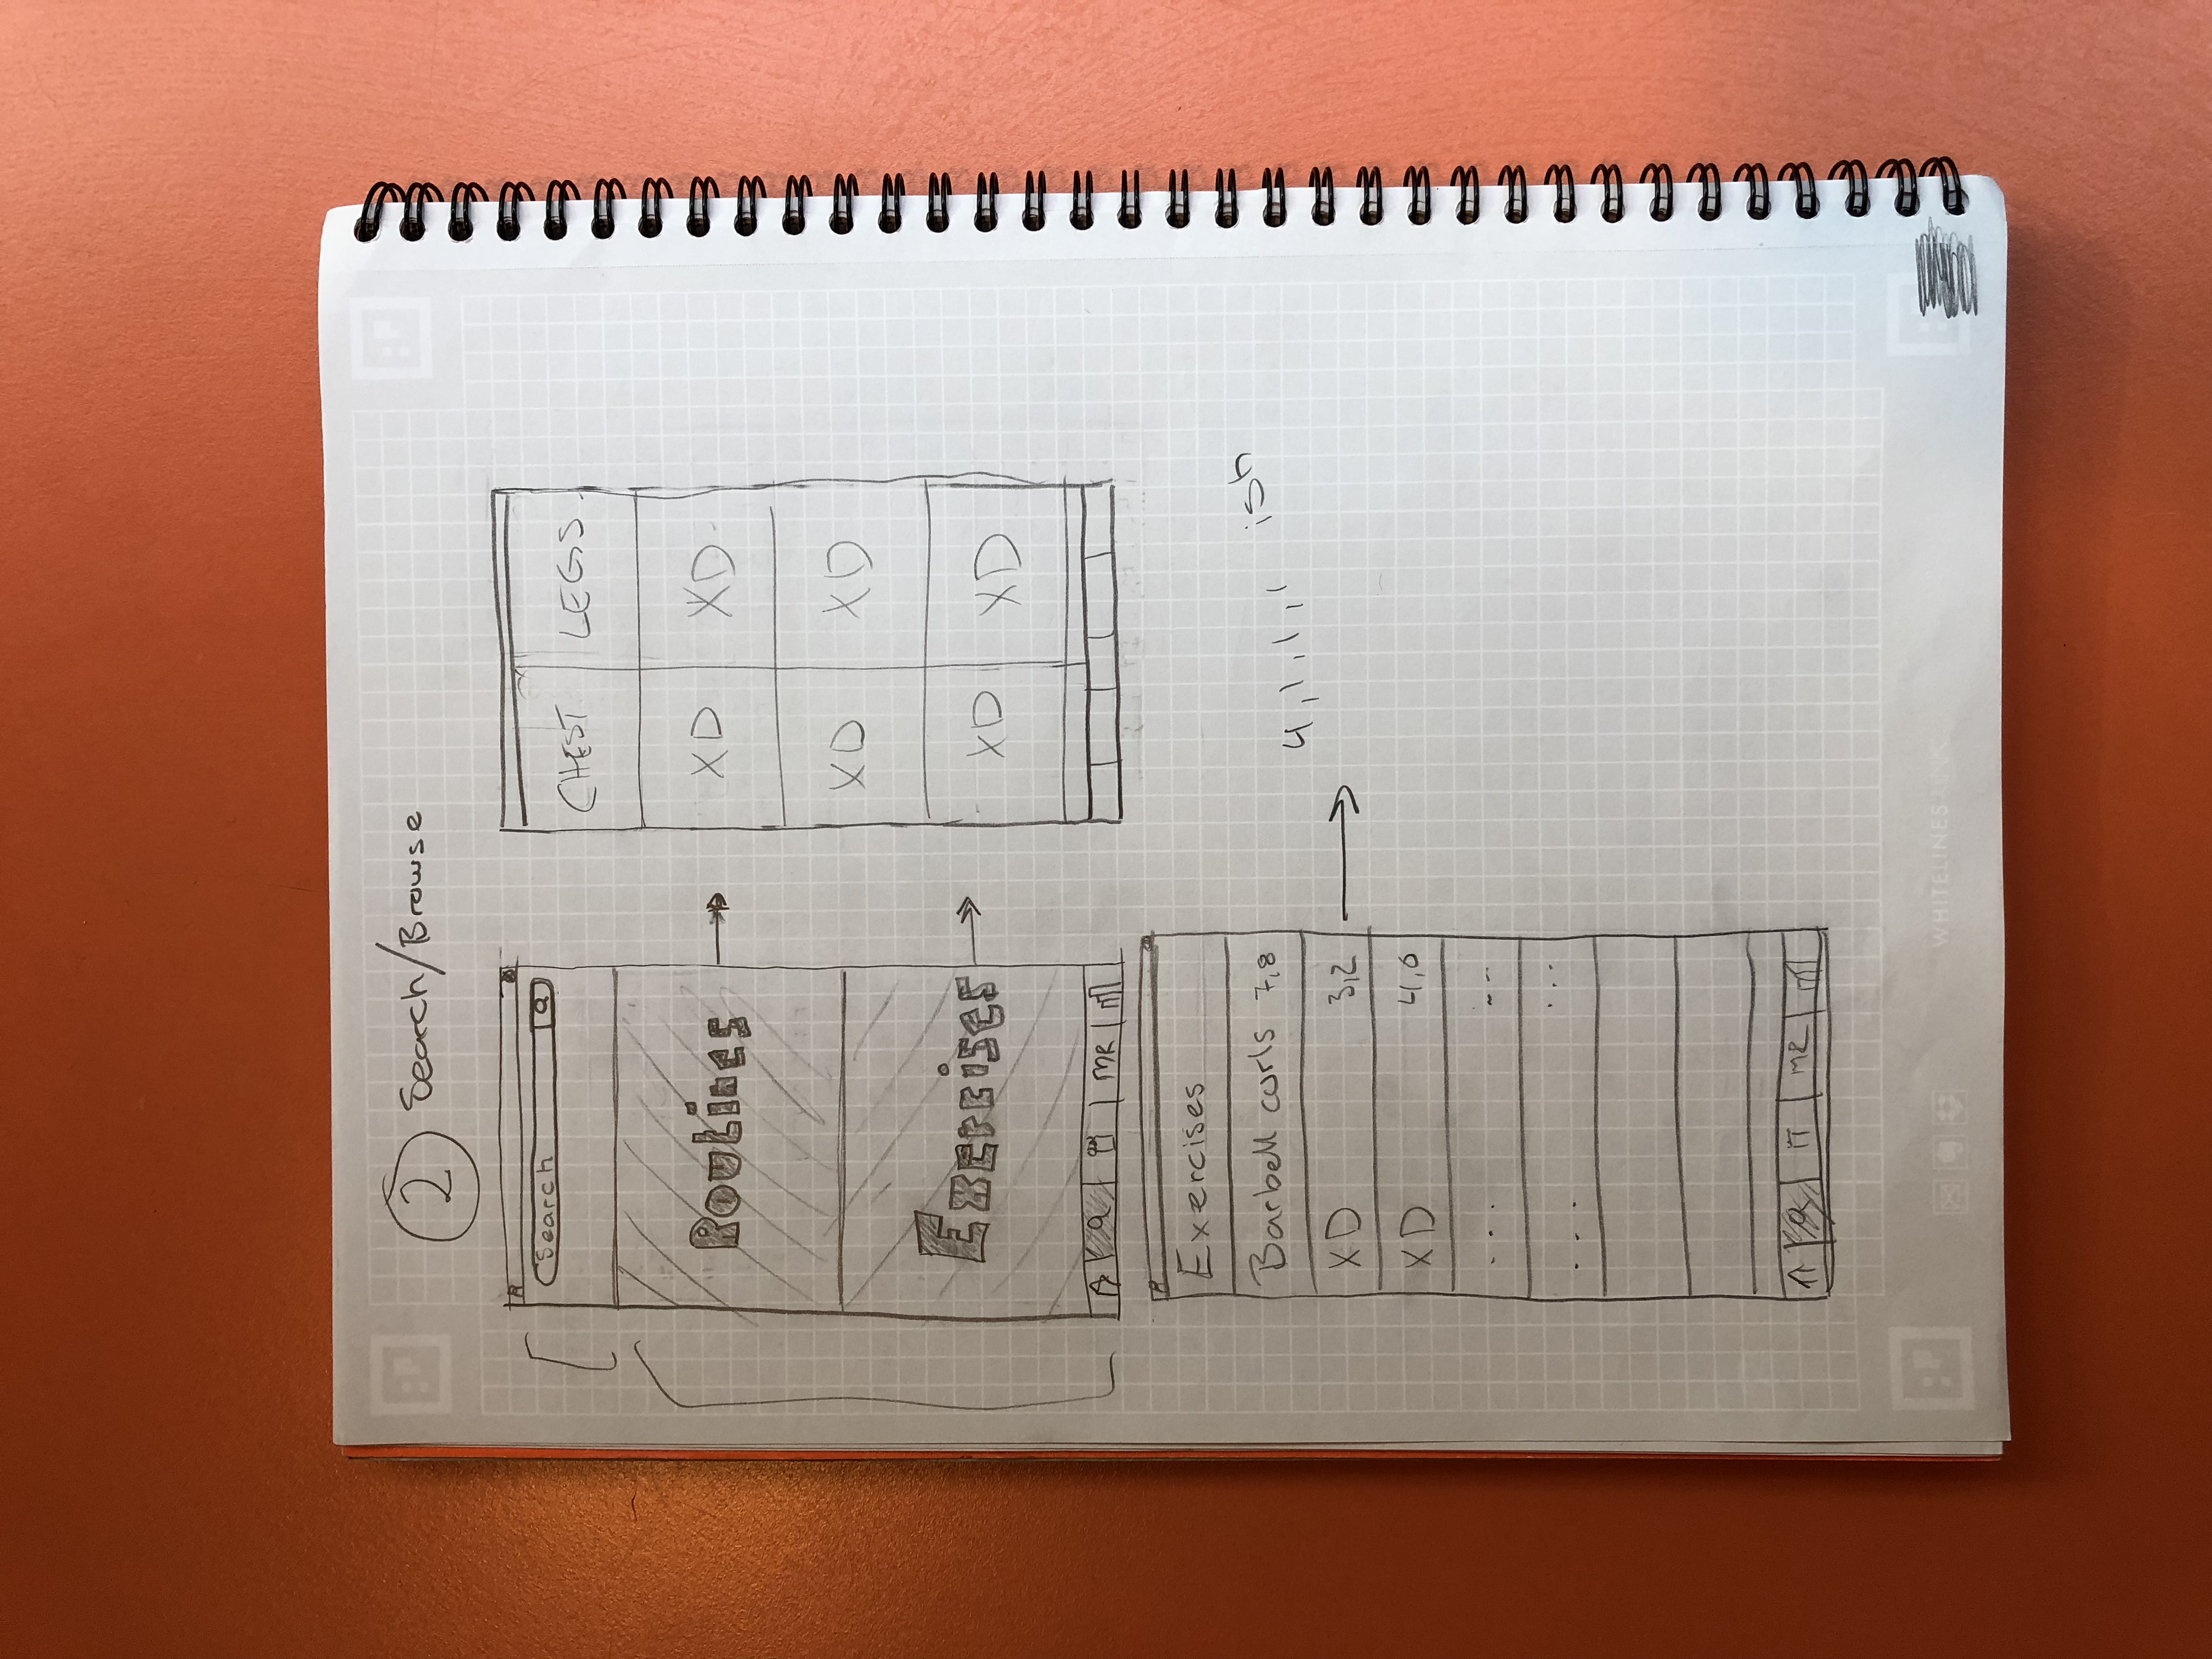 2 Search/Browse
Search
Routines
Exercises
MR
CHEST LEGS
XD XD
XD XD
XD XD
Exercises
Barbell curls 7,8
XD 3,2
XD 4,0
... --
... ...
MR
4,1,1,1 ish
WHITELINES LINK